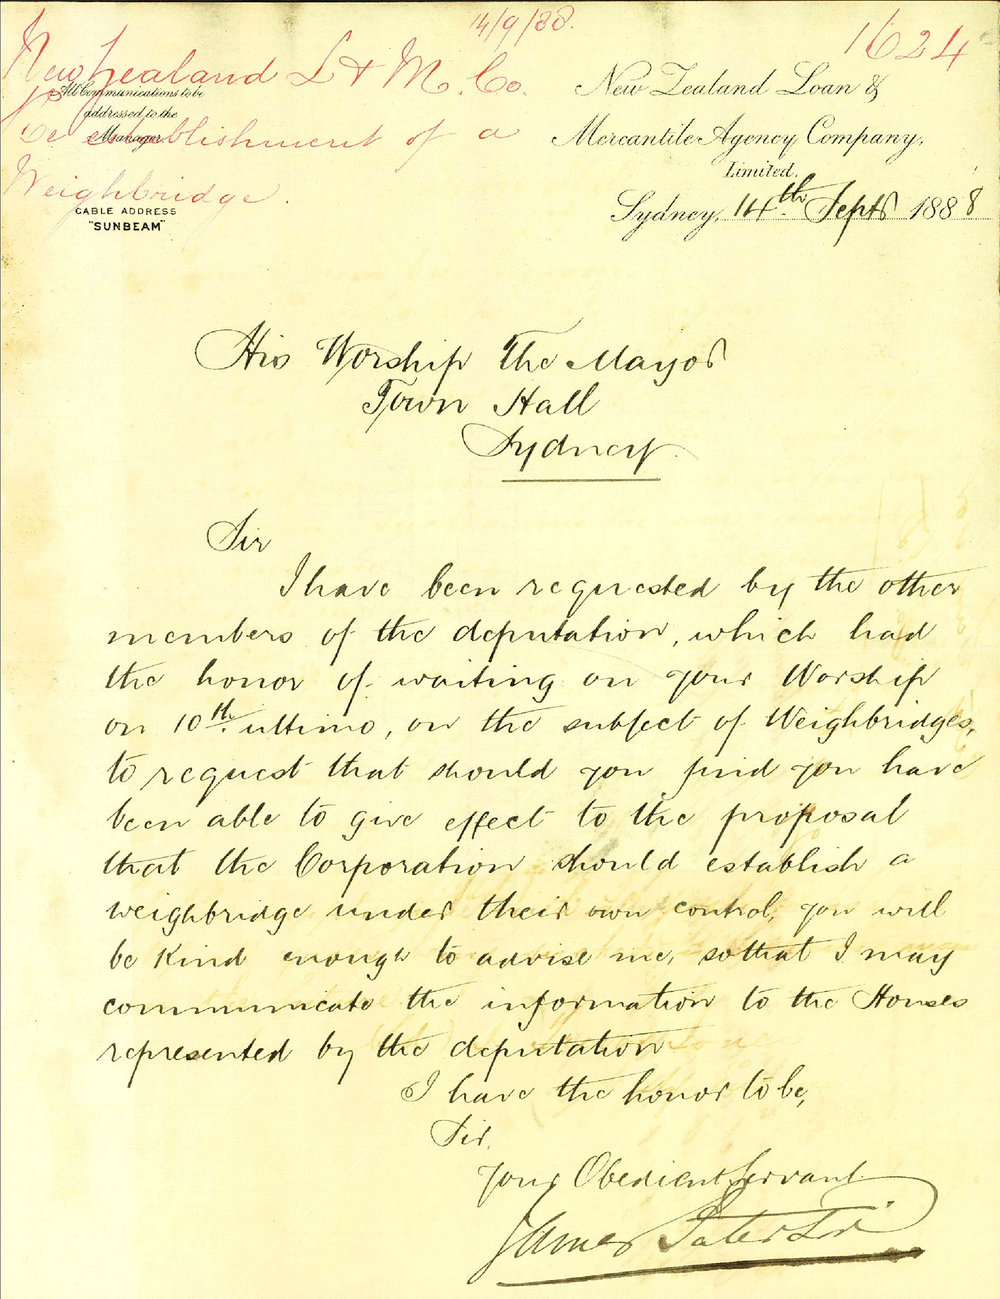 14/9/88.
1624
New Zealand L & M. Co.
re establishment of a
Weighbridge.
All Communications to be
addressed to the
Manager.
CABLE ADDRESS
"SUNBEAM"
New Zealand Loan &
Mercantile Agency Company,
Limited.
Sydney, 14th Septr 1888
His Worship The Mayor
Town Hall
Sydney.
Sir
I have been requested by the other
members of the deputation, which had
the honor of waiting on your Worship
on 10th. ultimo, on the subject of Weighbridges,
to request that should you find you have
been able to give effect to the proposal
that the Corporation should establish a
weighbridge under their own control, you will
be kind enough to advise me, so that I may
communicate the information to the Houses
represented by the deputation
I have the honor to be,
Sir,
Your Obedient Servant
James